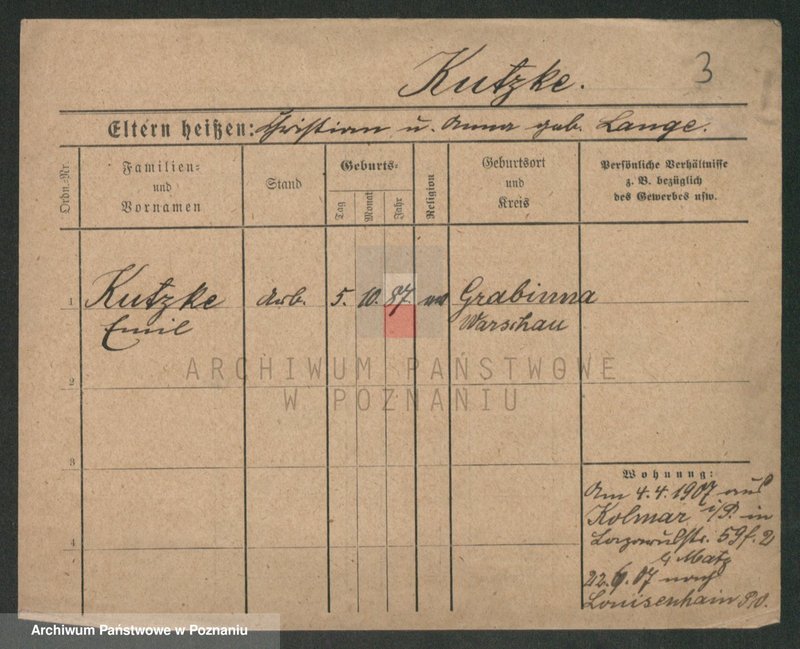 Kutzke. 3
Eltern heißen: Christian u. Anna geb. Lange.
Ordn.-Nr.
Familien-
und
Vornamen
Stand
Geburts-
Tag
Monat
Jahr
Religion
Geburtsort
und
Kreis
Persönliche Verhältnisse
z. B. bezüglich
des Gewerbes usw.
1 Kutzke Arb. 5. 10. 87 Grabinna
Emil Warschau
ARCHIWUM PAŃSTWOWE
W POZNANIU
2
3
4
Wohnung:
Am 4.4.1907 aus
Kolmar i/P. in
59f. 2
b/ Matz
22.6.07 nach
Louisenhain P/O.
Archiwum Państwowe w Poznaniu